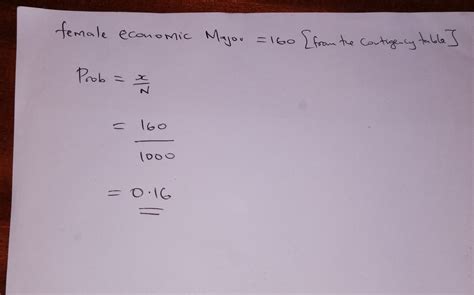 female economic Major = 160 [from the Contigency table]
Prob = x/N
= 160/1000
= 0.16